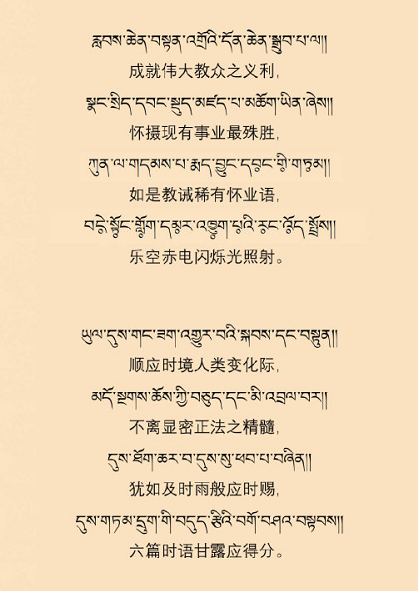 རླབས་ཆེན་བསྟན་འགྲོའི་དོན་ཆེན་སྒྲུབ་པ་ལ།།
成就伟大教众之义利，
སྣང་སྲིད་དབང་སྡུད་མཛད་པ་མཆོག་ཡིན་ཞེས།།
怀摄现有事业最殊胜，
ཀུན་ལ་གདམས་པ་རྨད་བྱུང་དབང་གི་གཏམ།།
如是教诫稀有怀业语，
བདེ་སྟོང་གློག་དམར་འཁྱུག་པའི་རང་འོད་སྤྲོས།།
乐空赤电闪烁光照射。
ཡུལ་དུས་གང་ཟག་འགྱུར་བའི་སྐབས་དང་བསྟུན།།
顺应时境人类变化际，
མདོ་སྔགས་ཆོས་ཀྱི་བཅུད་དང་མི་འབྲལ་བར།།
不离显密正法之精髓，
དུས་ཐོག་ཆར་བ་དུས་སུ་ཕབ་པ་བཞིན།།
犹如及时雨般应时赐，
དུས་གཏམ་དྲུག་གི་བདུད་རྩིའི་བགོ་བཤའ་བསྟབས།།
六篇时语甘露应得分。